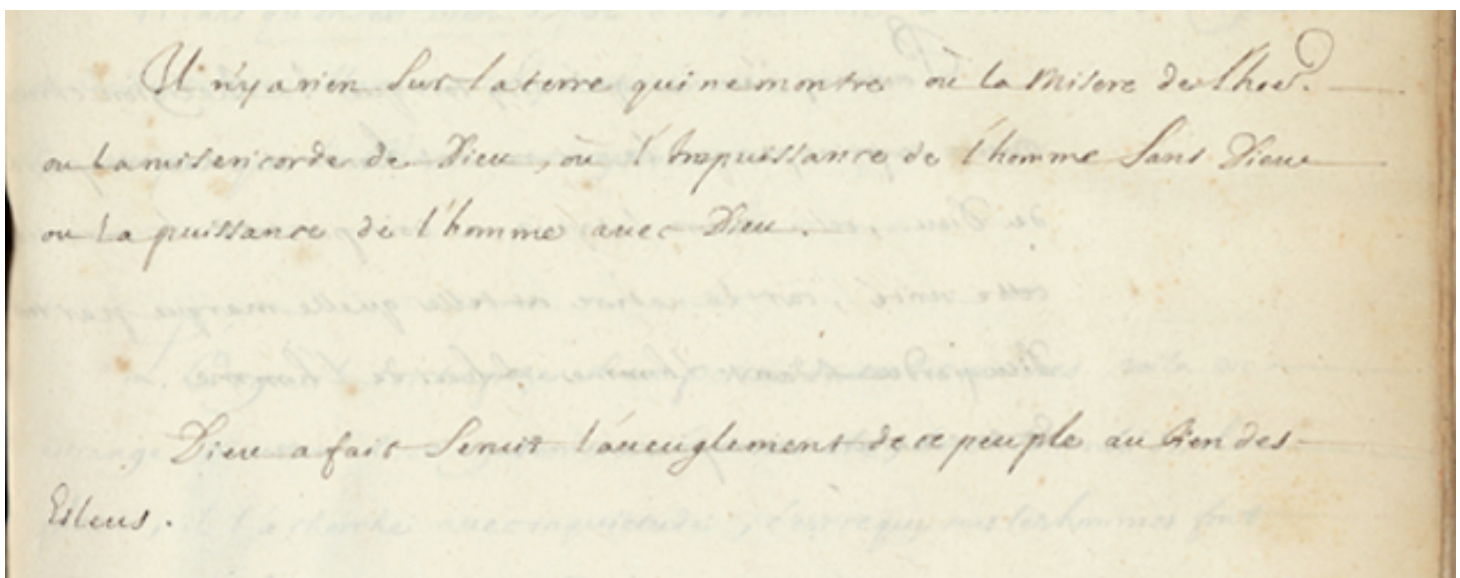 Il n'y a rien sur la terre qui ne montre ou la misere de l'hoe.
ou la misericorde de Dieu, ou l'Impuissance de l'homme sans Dieu
ou la puissance de l'homme avec Dieu.
Dieu a fait servir l'aveuglement de ce peuple au bien des
Esleus.